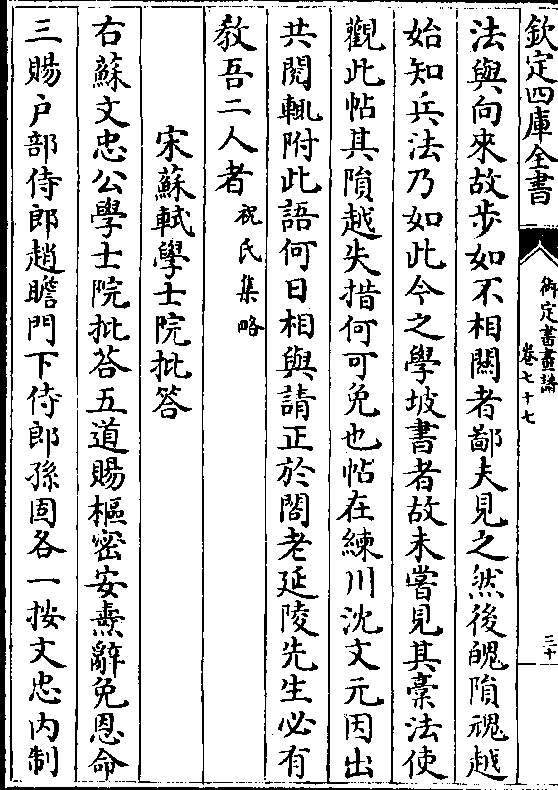 欽定四庫全書
御定書畫譜
卷七十七
三十
法與向來故步如不相關者鄙夫見之然後魄隕魂越
始知兵法乃如此今之學坡書者故未嘗見其稾法使
觀此帖其隕越失措何可免也帖在練川沈文元因出
共閱輒附此語何日相與請正於閣老延陵先生必有
教吾二人者祝氏集略
宋蘇軾學士院批答
右蘇文忠公學士院批答五道賜樞密安燾辭免恩命
三賜户部侍郎趙瞻門下侍郎孫固各一按文忠内制